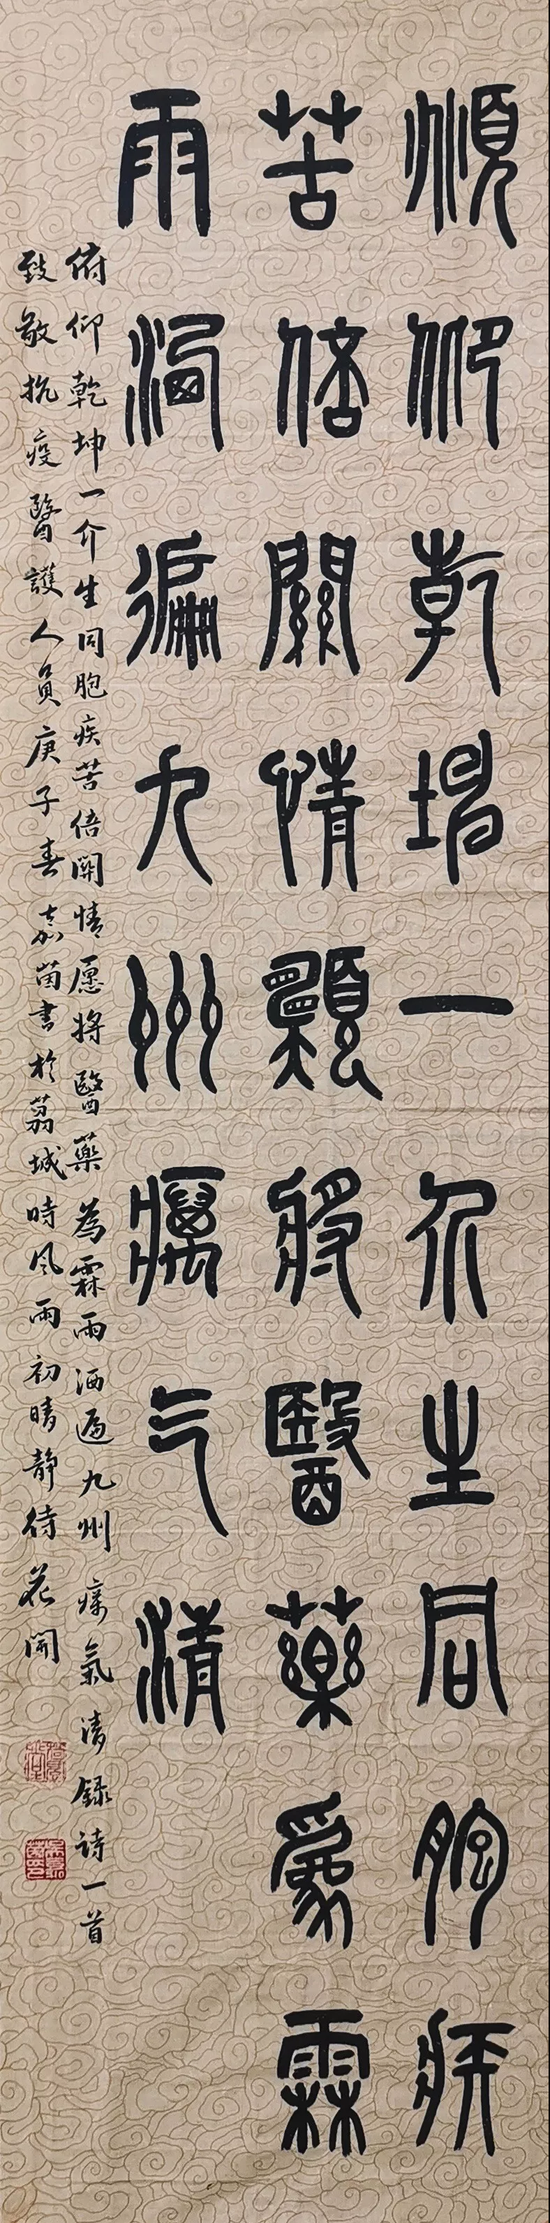 俯仰乾坤一介生同胞疾
苦倍關情願將醫藥為霖
雨洒遍九州癘气清
俯仰乾坤一介生同胞疾苦倍關情愿將醫藥為霖雨洒遍九州瘴氣清錄詩一首
致敬抗疫醫護人員庚子春嘉茵書於荔城時風雨初晴靜待花開